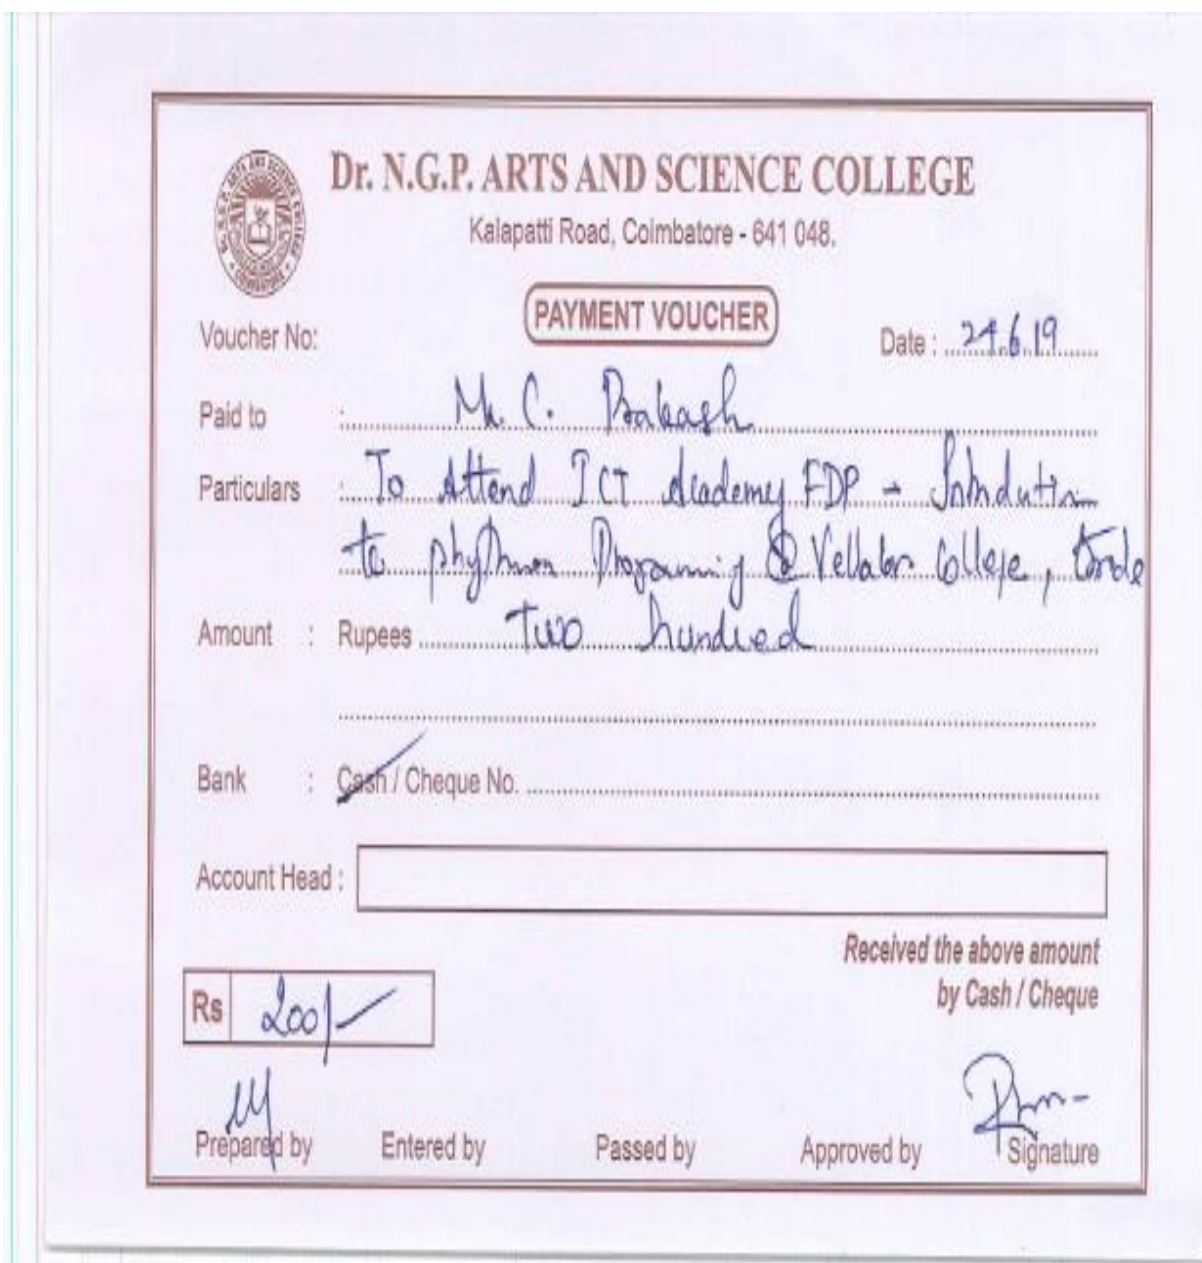 Dr. N.G.P. ARTS AND SCIENCE COLLEGE
Kalapatti Road, Coimbatore - 641 048.
PAYMENT VOUCHER
Voucher No: Date : 24.6.19
Paid to : Mr. C. Prakash
Particulars : To Attend ICT Academy FDP - Introduction
to phython Programing @ Vellalar College, Erode
Amount : Rupees Two hundred
Bank : Cash / Cheque No.
Account Head :
Received the above amount
by Cash / Cheque
Rs 200/-
Prepared by Entered by Passed by Approved by Signature